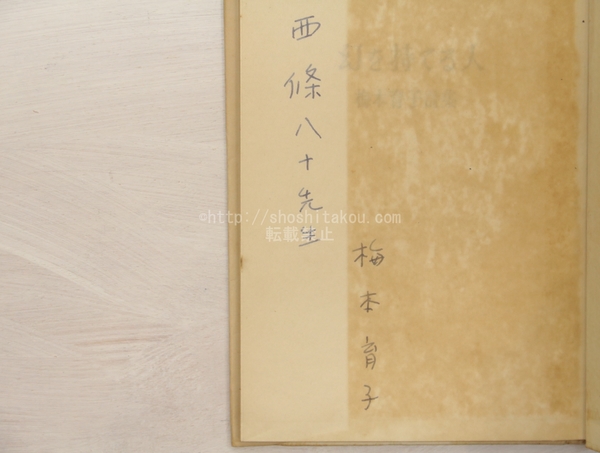 西條八十先生
梅本育子
©http://shoshitakou.com/
転載禁止